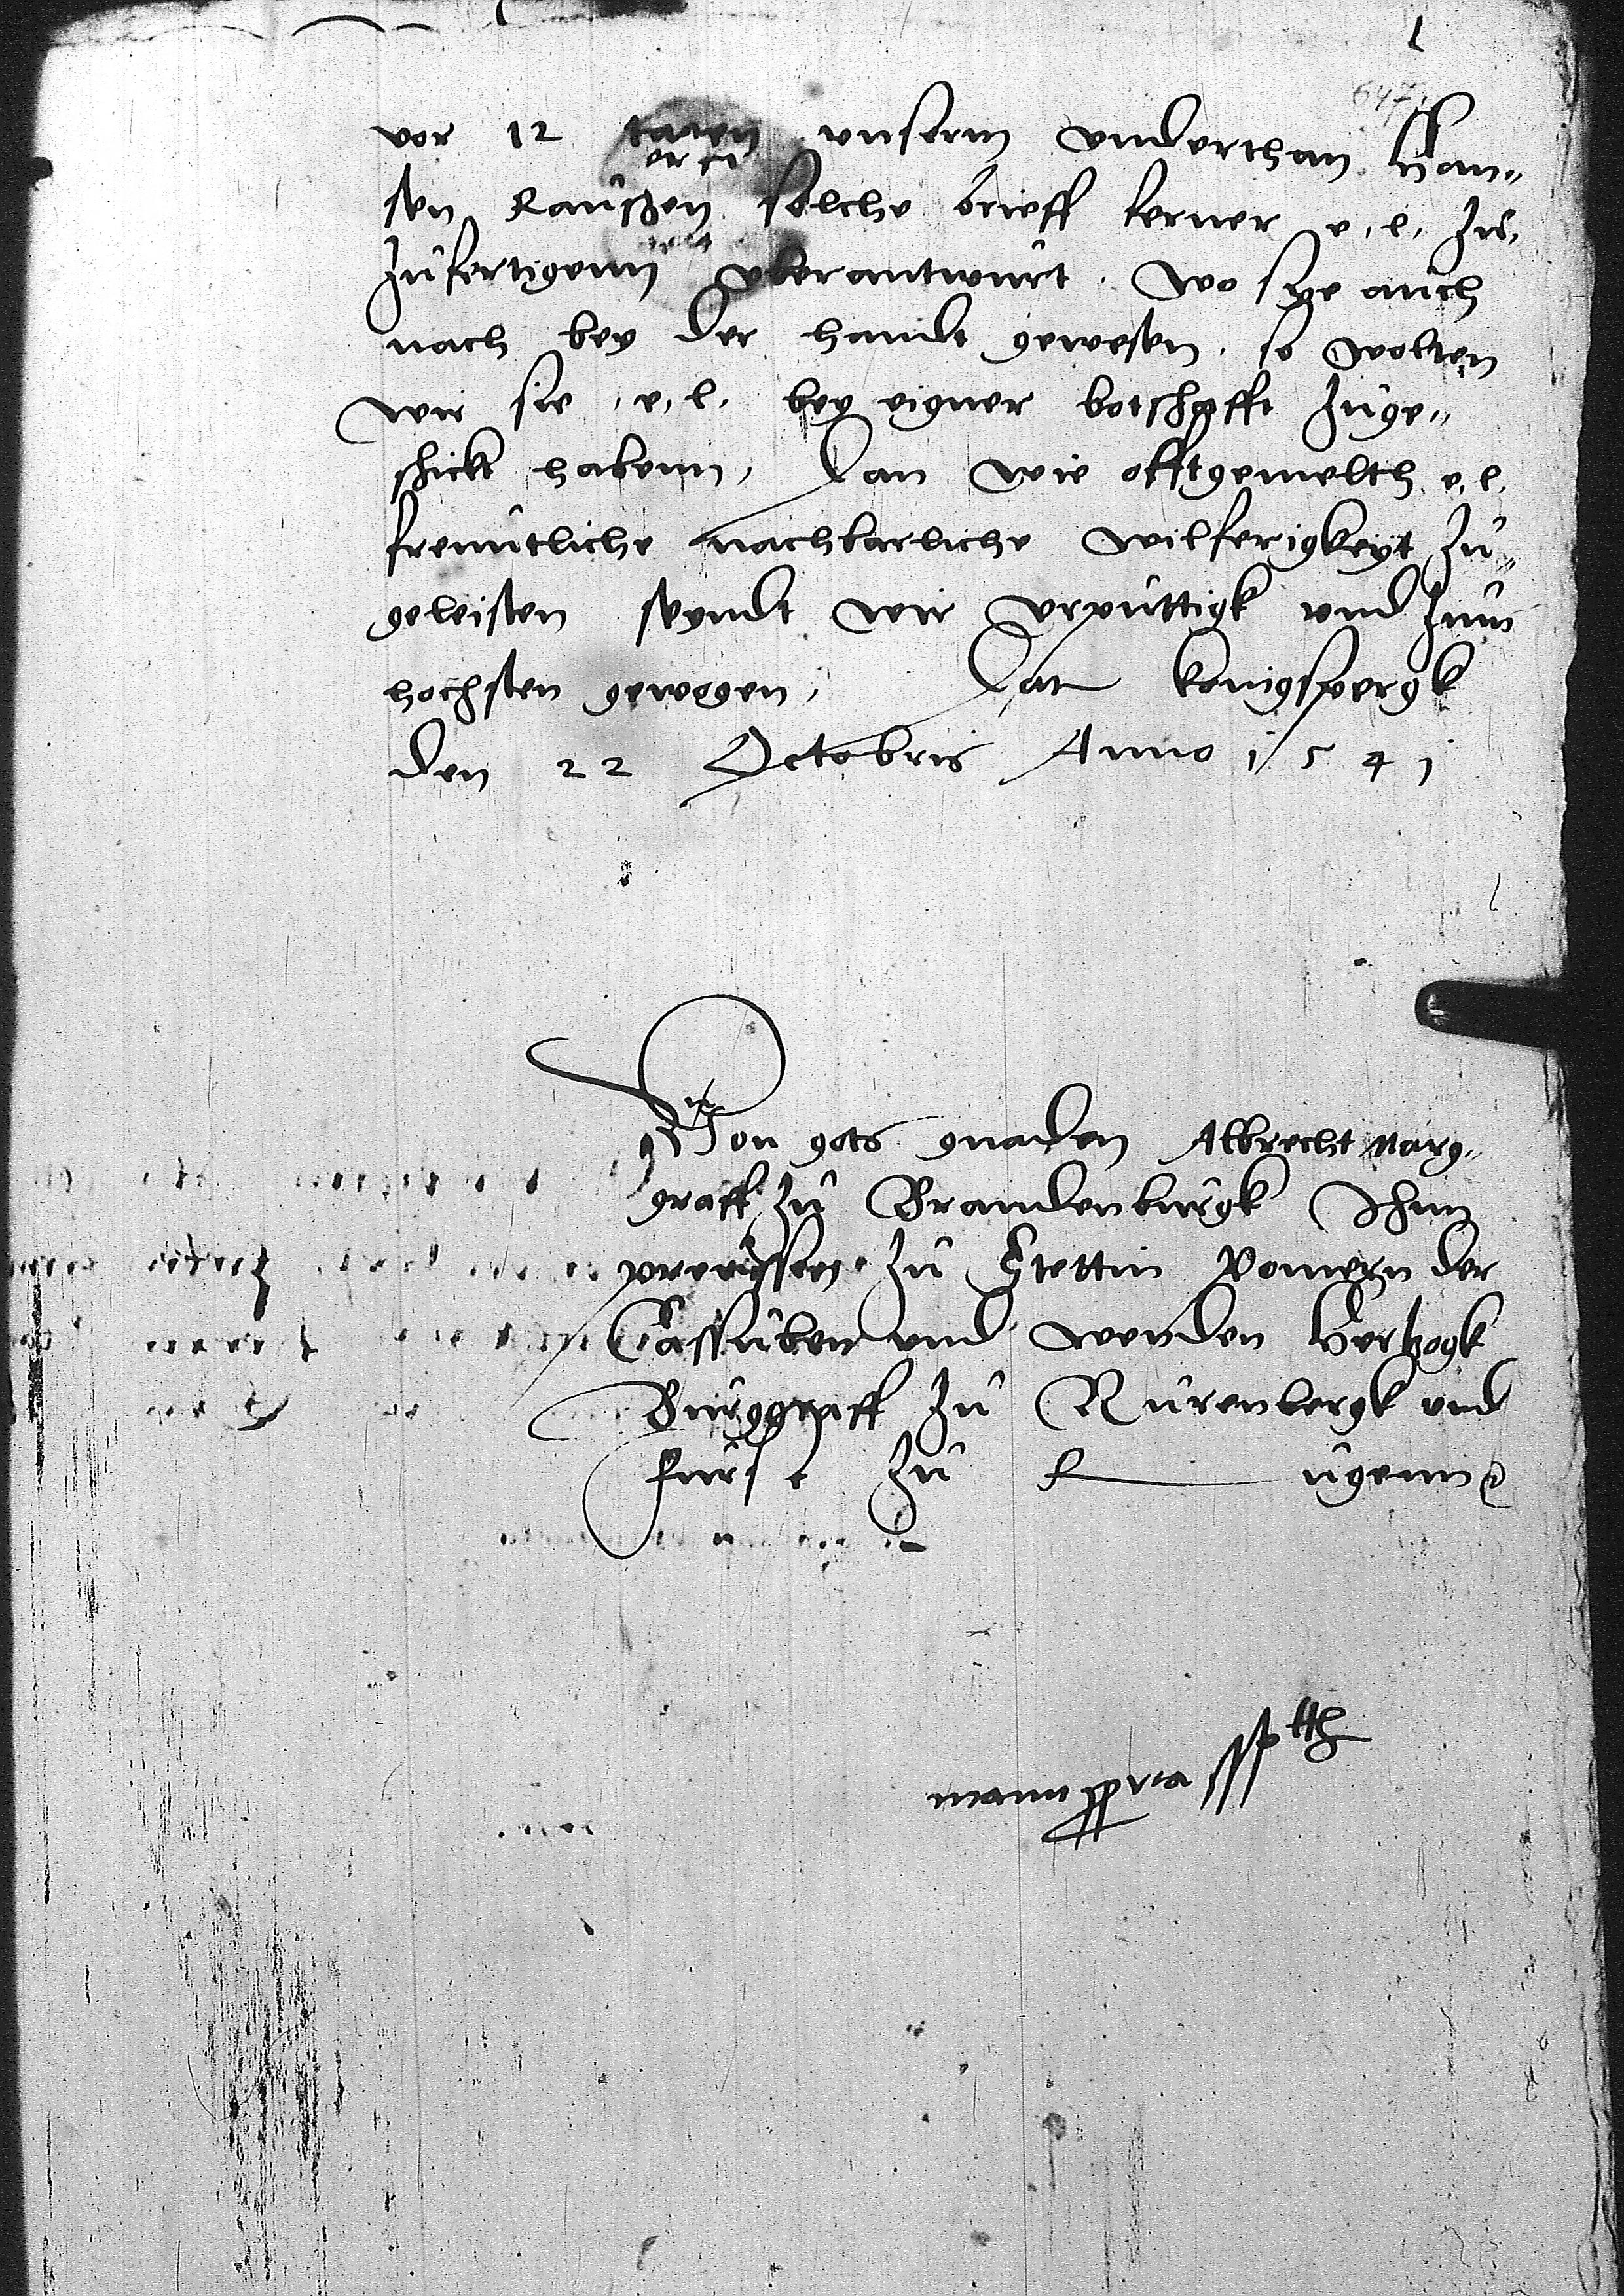 647
vor 12 tagen unserm underthan Han„
sen Rauschen solche brieff ferner e. l. zu„
zufertigenn uberantwurt. Wo sye auch
nach bey der handt gewesen, so wolten
wir sie e. l. bey eigner botschafft zuge„
schickt habenn, dan wie offtgemelth e. l.
freuntliche nachbarliche wilferigkeyt zu„
geleisten seyndt wir erputtigk und zum
hochsten gewogen, Dat konigspergk
den 22 Octobris Anno 1541
Von gots gnaden Albrecht Marg„
graff zu Brandenburgk Jhnn
preussen zu Stettin Pomern der
Cassuben und wenden Hertzogk
Burggraff zu Nurenbergk und
furst zu Rugenn
manu ppria sss